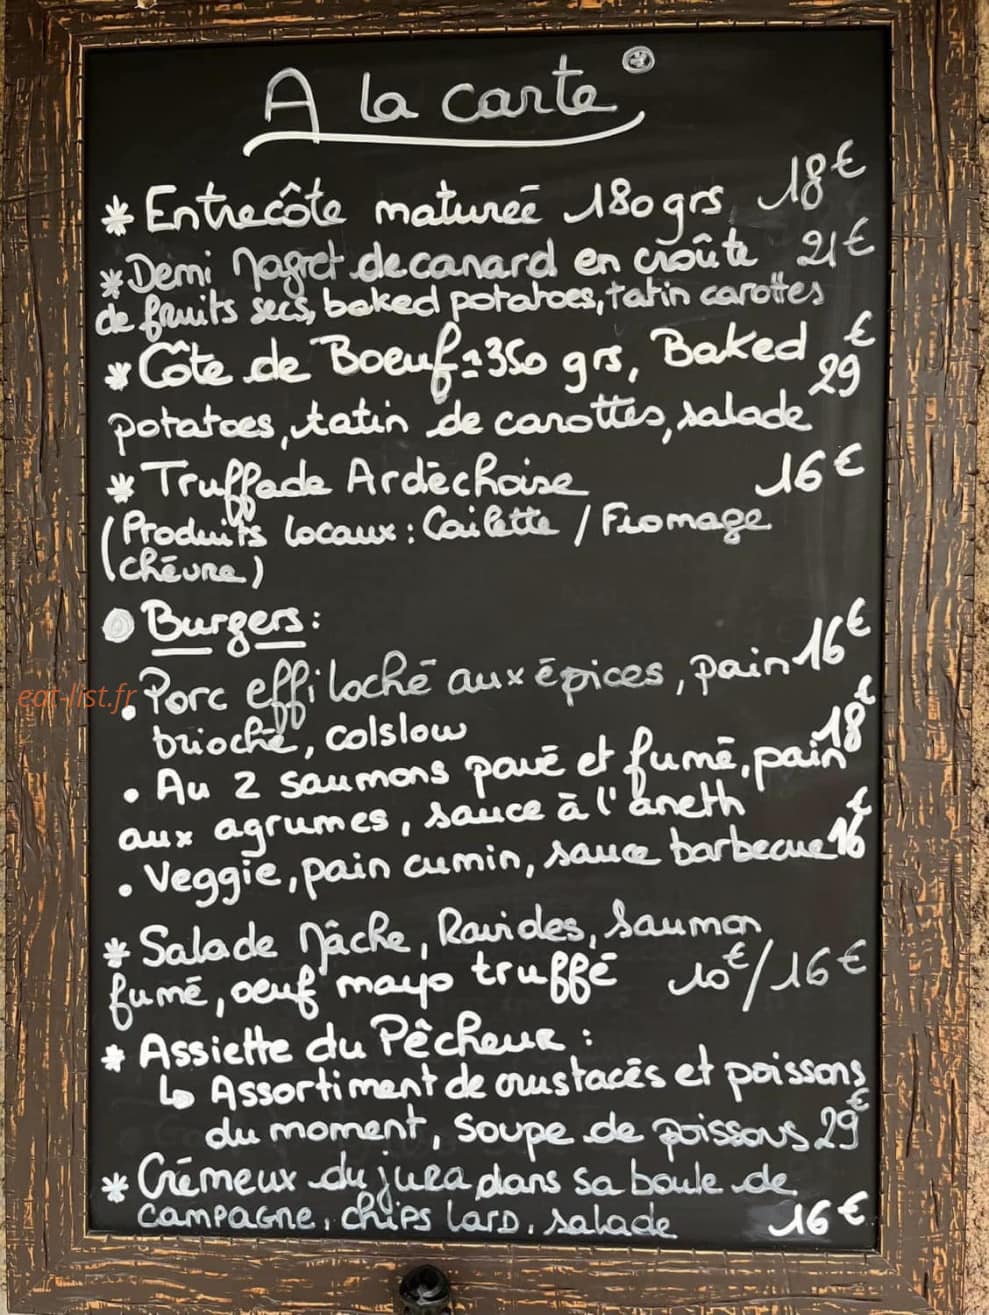 A la carte
* Entrecôte maturée 180 grs 18€
* Demi Magret de canard en croûte 21€
de fruits secs, baked potatoes, tatin carottes
* Côte de Boeuf ≃ 350 grs, Baked 29€
potatoes, tatin de carottes, salade
* Truffade Ardèchoise 16€
(Produits locaux : Caillette / Fromage
(chèvre)
Burgers :
. Porc effiloché aux épices, pain 16€
brioché, colslow
. Au 2 saumons pavé et fumé, pain 18€
aux agrumes, sauce à l'aneth
. Veggie, pain cumin, sauce barbecue 16€
* Salade Mâche, Ravides, Saumon
fumé, oeuf mayo truffé 10€/16€
* Assiette du Pêcheur :
↳ Assortiment de crustacés et poissons
du moment, Soupe de poissons 29€
* Crémeux du jura dans sa boule de
campagne, chips lard, salade 16€
eat-list.fr